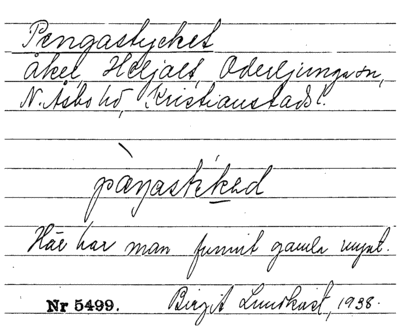 Pengastycket
Åker, Heljalt, Oderljunga sn,
N. Åsbo hd, Kristianstads l.
pàŋastikəd
Här har man funnit gamla mynt.
Nr 5499. Birgit Lundkvist, 1938.